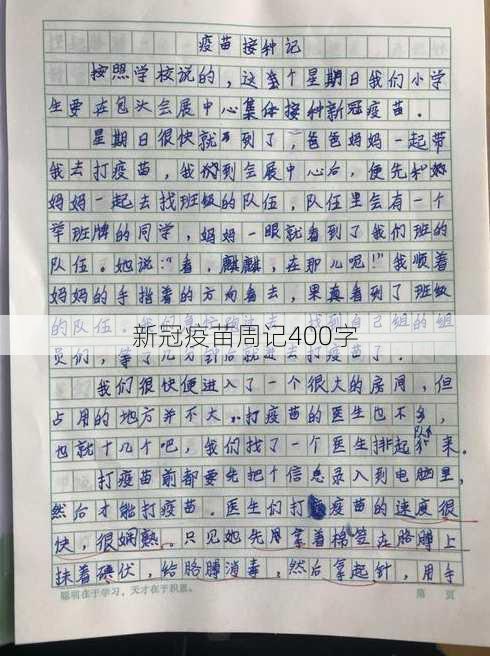 疫苗接种记
按照学校说的，这个星期日我们小学
生要在包头会展中心集体接种新冠疫苗．
星期日很快就到了，爸爸妈妈一起带
我去打疫苗，我们到会展中心后，便先和
妈妈一起去找班级的队伍．队伍里会有一个
举班牌的同学，妈妈一眼就看到了我们班的
队伍。她说："看，麒麒，在那儿呢!"我顺着
妈妈的手指着的方向看去，果真看到了班级
的队伍．我们
新冠疫苗周记400字
员们，等了几分钟后就进去打疫苗了．
我们很快便进入了一个很大的房间，但
占用的地方并不大．打疫苗的医生也不多，
也就十几个吧，我们找了一个医生排起队来．
打疫苗前都要先把个信息录入到电脑里，
然后才能打疫苗．医生们打疫苗的速度很
快，很娴熟．只见她先用拿着棉签在胳膊上
抹着碘伏，给胳膊消毒，然后拿起针，用手
聪明在于学习，天才在于积累。
第 页